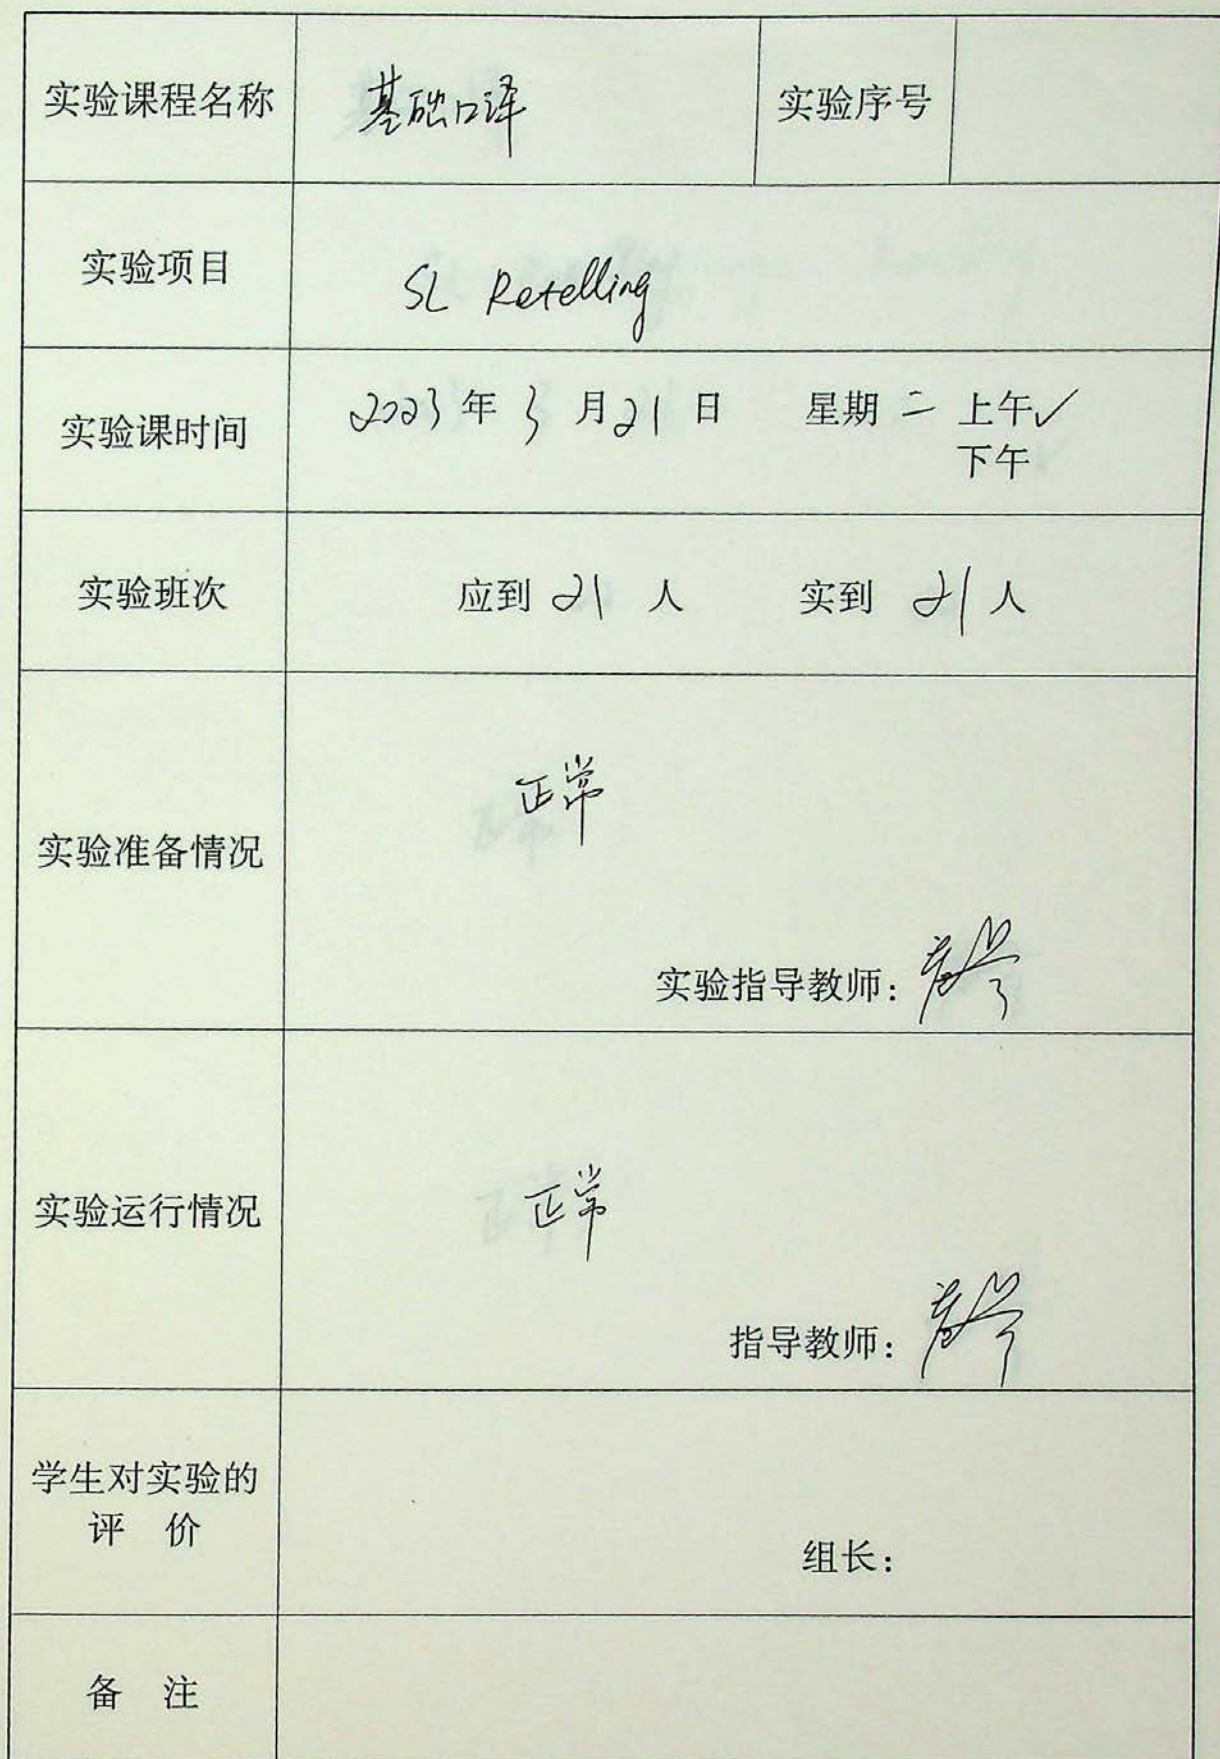 实验课程名称 基础口译 实验序号
实验项目 SL Retelling
实验课时间 2023年3月21日 星期二 上午✓
下午
实验班次 应到21人 实到21人
正常
实验准备情况
实验指导教师：
正常
实验运行情况
指导教师：
学生对实验的
评 价
组长：
备 注